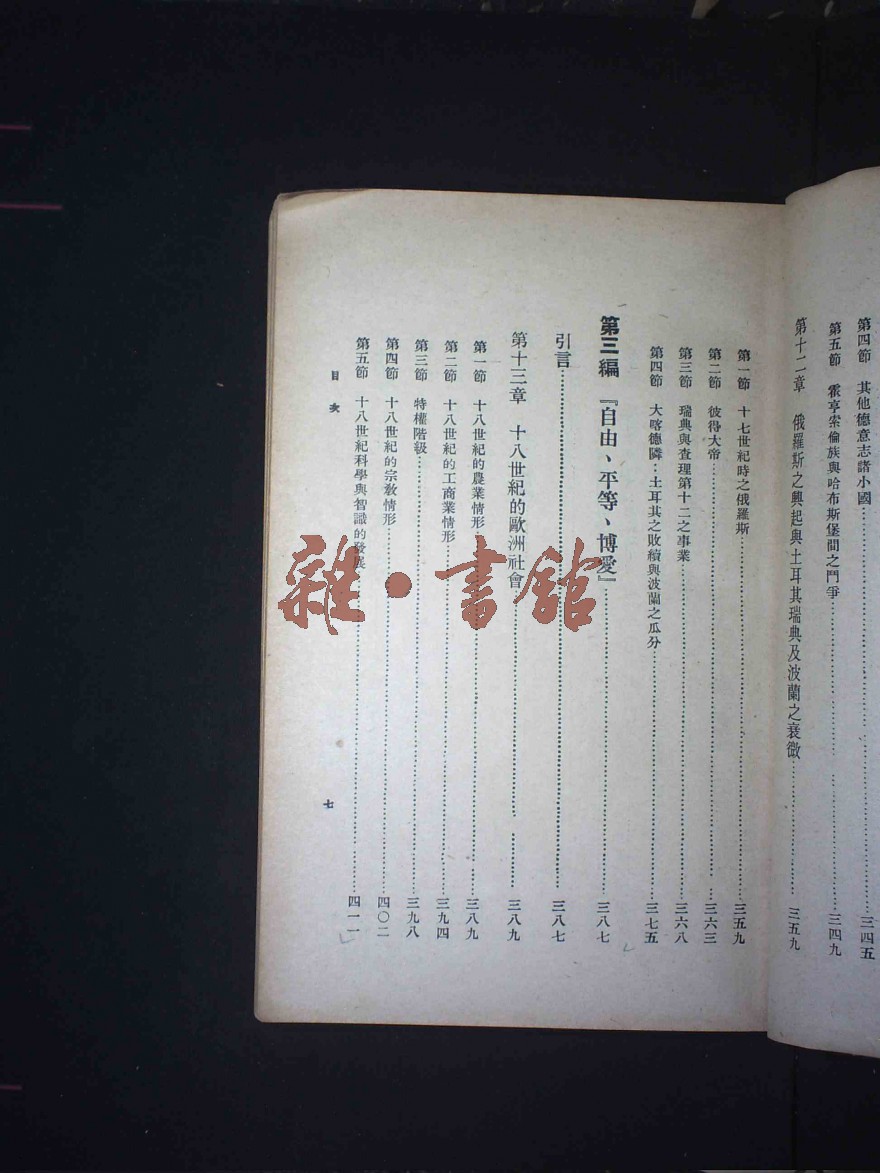 第四節　其他德意志諸小國……三四五
第五節　霍亨索倫族與哈布斯堡間之鬥爭……三四九
第十二章　俄羅斯之興起與土耳其瑞典及波蘭之衰微……三五九
第一節　十七世紀時之俄羅斯……三五九
第二節　彼得大帝……三六三
第三節　瑞典與查理第十二之事業……三六八
第四節　大喀德隣：土耳其之敗績與波蘭之瓜分……三七五
第三編　『自由、平等、博愛』……三八七
引言……三八七
第十三章　十八世紀的歐洲社會……三八九
第一節　十八世紀的農業情形……三八九
第二節　十八世紀的工商業情形……三九四
第三節　特權階級……三九八
第四節　十八世紀的宗教情形……四〇二
第五節　十八世紀科學與智識的發展……四一一
目次
七
雜·書館